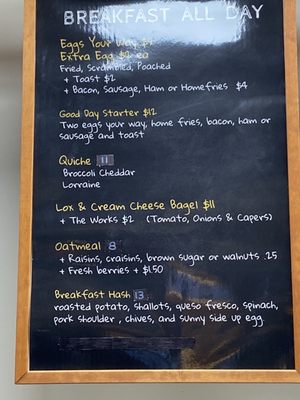 BREAKFAST ALL DAY
Eggs Your Way
Extra Egg $2 ea
Fried, Scrambled, Poached
+ Toast $2
+ Bacon, Sausage, Ham or Homefries $4
Good Day Starter $12
Two eggs your way, home fries, bacon, ham or
sausage and toast
Quiche 11
Broccoli Cheddar
Lorraine
Lox & Cream Cheese Bagel $11
+ The Works $2 (Tomato, Onions & Capers)
Oatmeal 8
+ Raisins, craisins, brown sugar or walnuts .25
+ Fresh berries + $1.50
Breakfast Hash 13
roasted potato, shallots, queso fresco, spinach,
pork shoulder, chives, and sunny side up egg